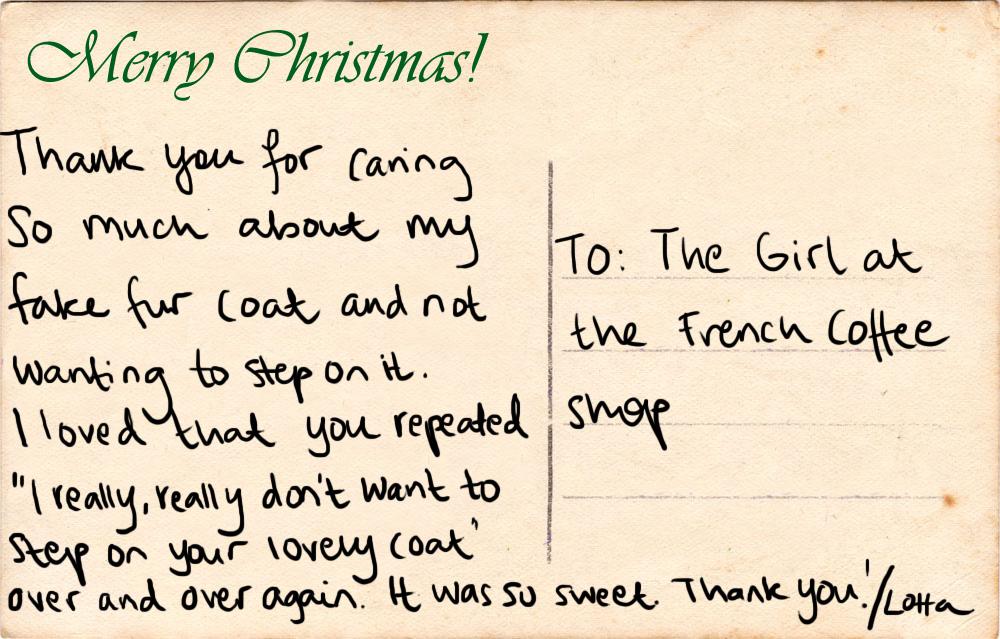 Merry Christmas!
Thank you for caring
so much about my
fake fur coat and not
wanting to step on it.
I loved that you repeated
"I really, really don't want to
step on your lovely coat"
over and over again. It was so sweet. Thank you! /Lotta
To: The Girl at
the French Coffee
shop